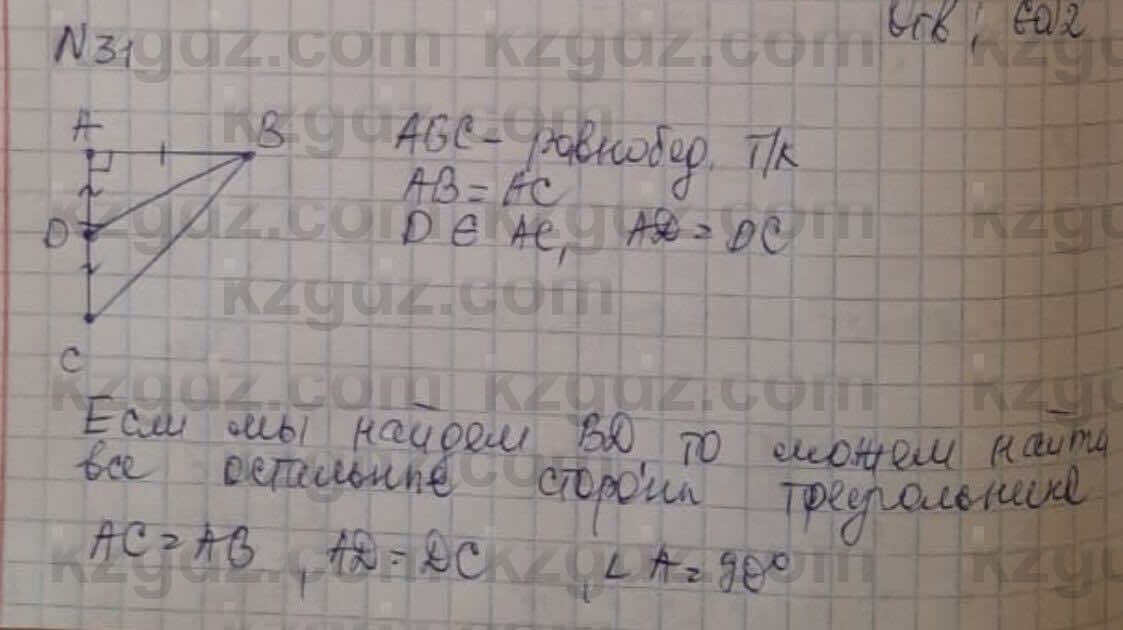 N 31
A
B
D
C
ABC - равнобед. т/к
AB = AC
D ∈ AC, AD = DC
Если мы найдем BD, то можем найти
все остальные стороны треугольника
AC = AB, AD = DC, ∠A = 90°
kzgdz.com